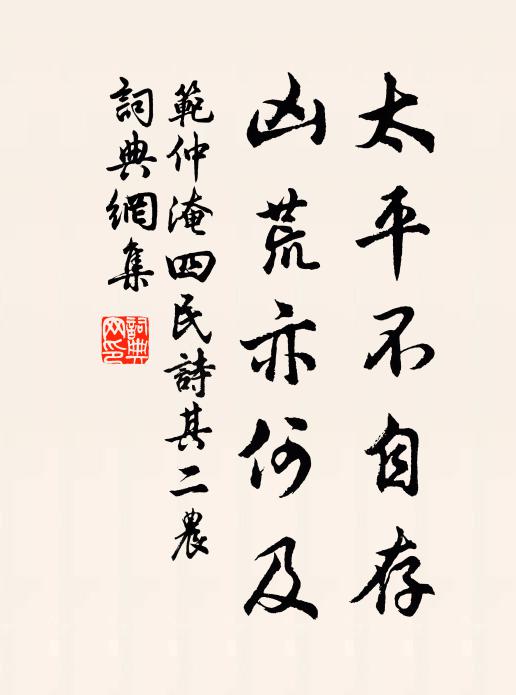 太平不自存
凶荒亦何及
範仲淹四民詩其二農
詞典網集
詞典
网印